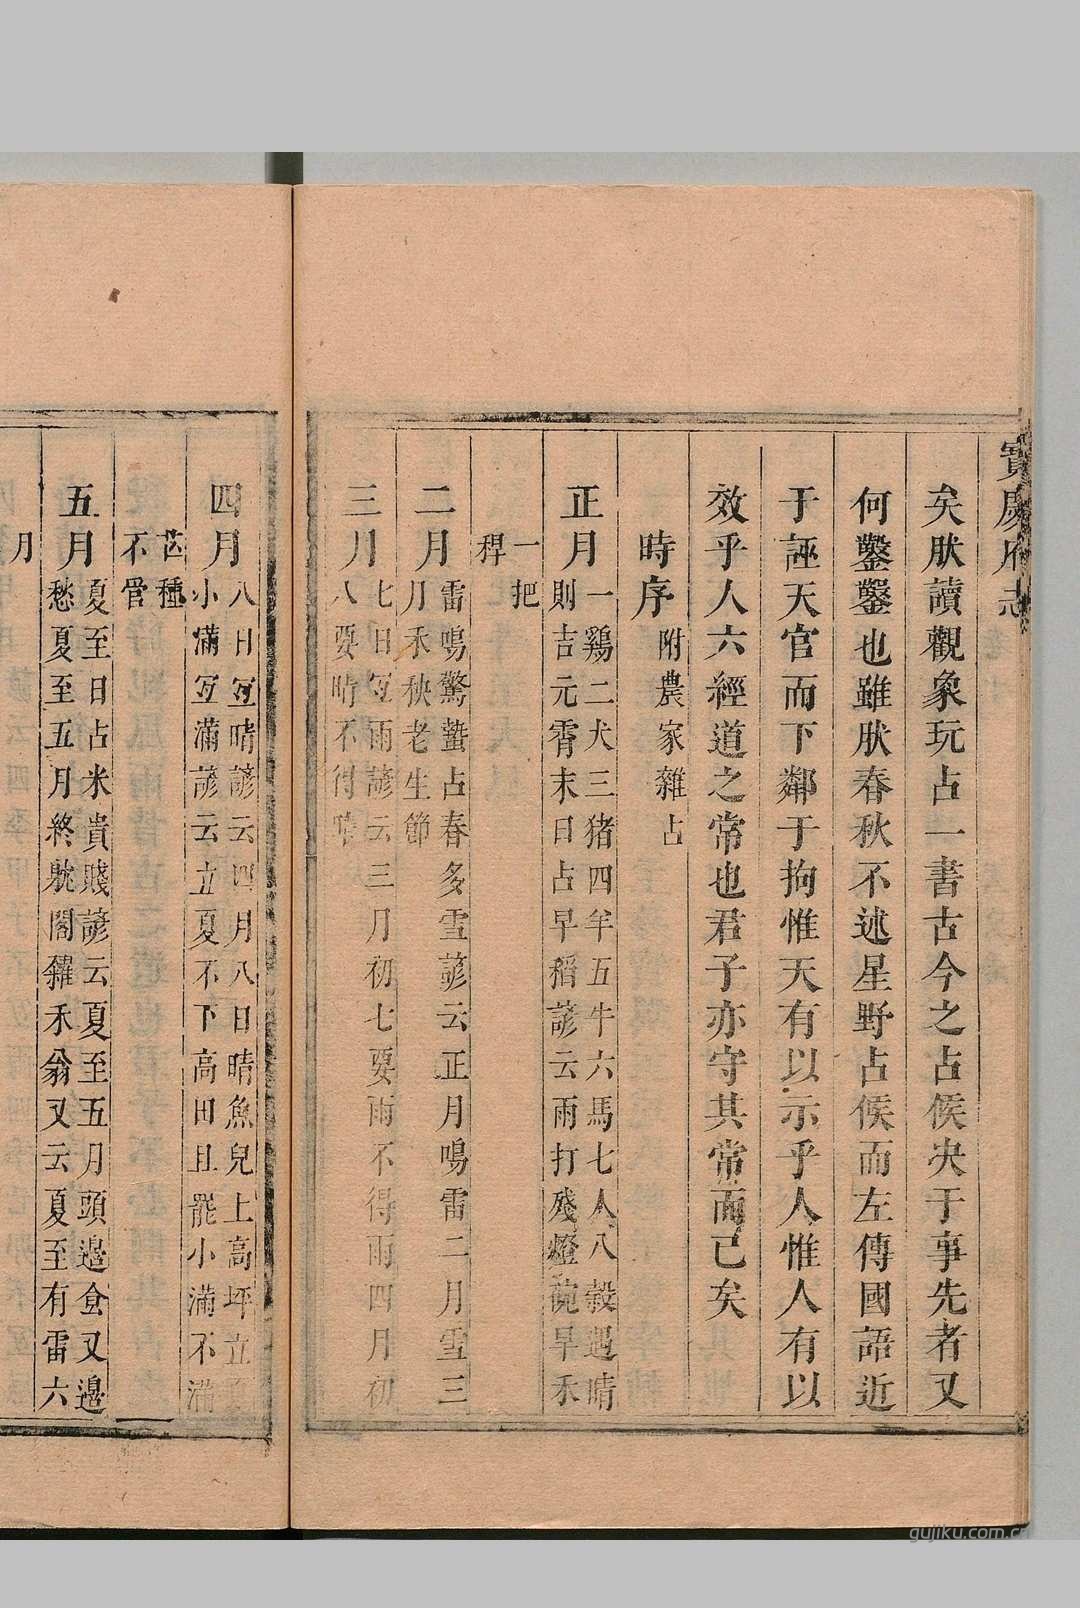 寳慶府志
矣肰讀觀象玩占一書古今之占候决于事先者又
何鑿鑿也雖肰春秋不述星野占候而左傳國語近
于誣天官而下鄰于拘惟天有以示乎人惟人有以
效乎人六經道之常也君子亦守其常而已矣
時序附農家雜占
正月一鷄二犬三猪四羊五牛六馬七人八穀遇晴
則吉元霄末日占早稻諺云雨打殘燈碗早禾
一把
稈
二月雷鳴驚蟄占春多雪諺云正月鳴雷二月雪三
月禾秧老生節
三月七日宜雨諺云三月初七要雨不得雨四月初
八要晴不得晴
四月八日宜晴諺云四月八日晴魚兒上高坪立夏
小滿宜滿諺云立夏不下高田且罷小滿不滿
芒種
不管
五月夏至日占米貴賤諺云夏至五月頭邊食又邊
愁夏至五月終躭閣糴禾翁又云夏至有雷六
月
gujiku.com.cn